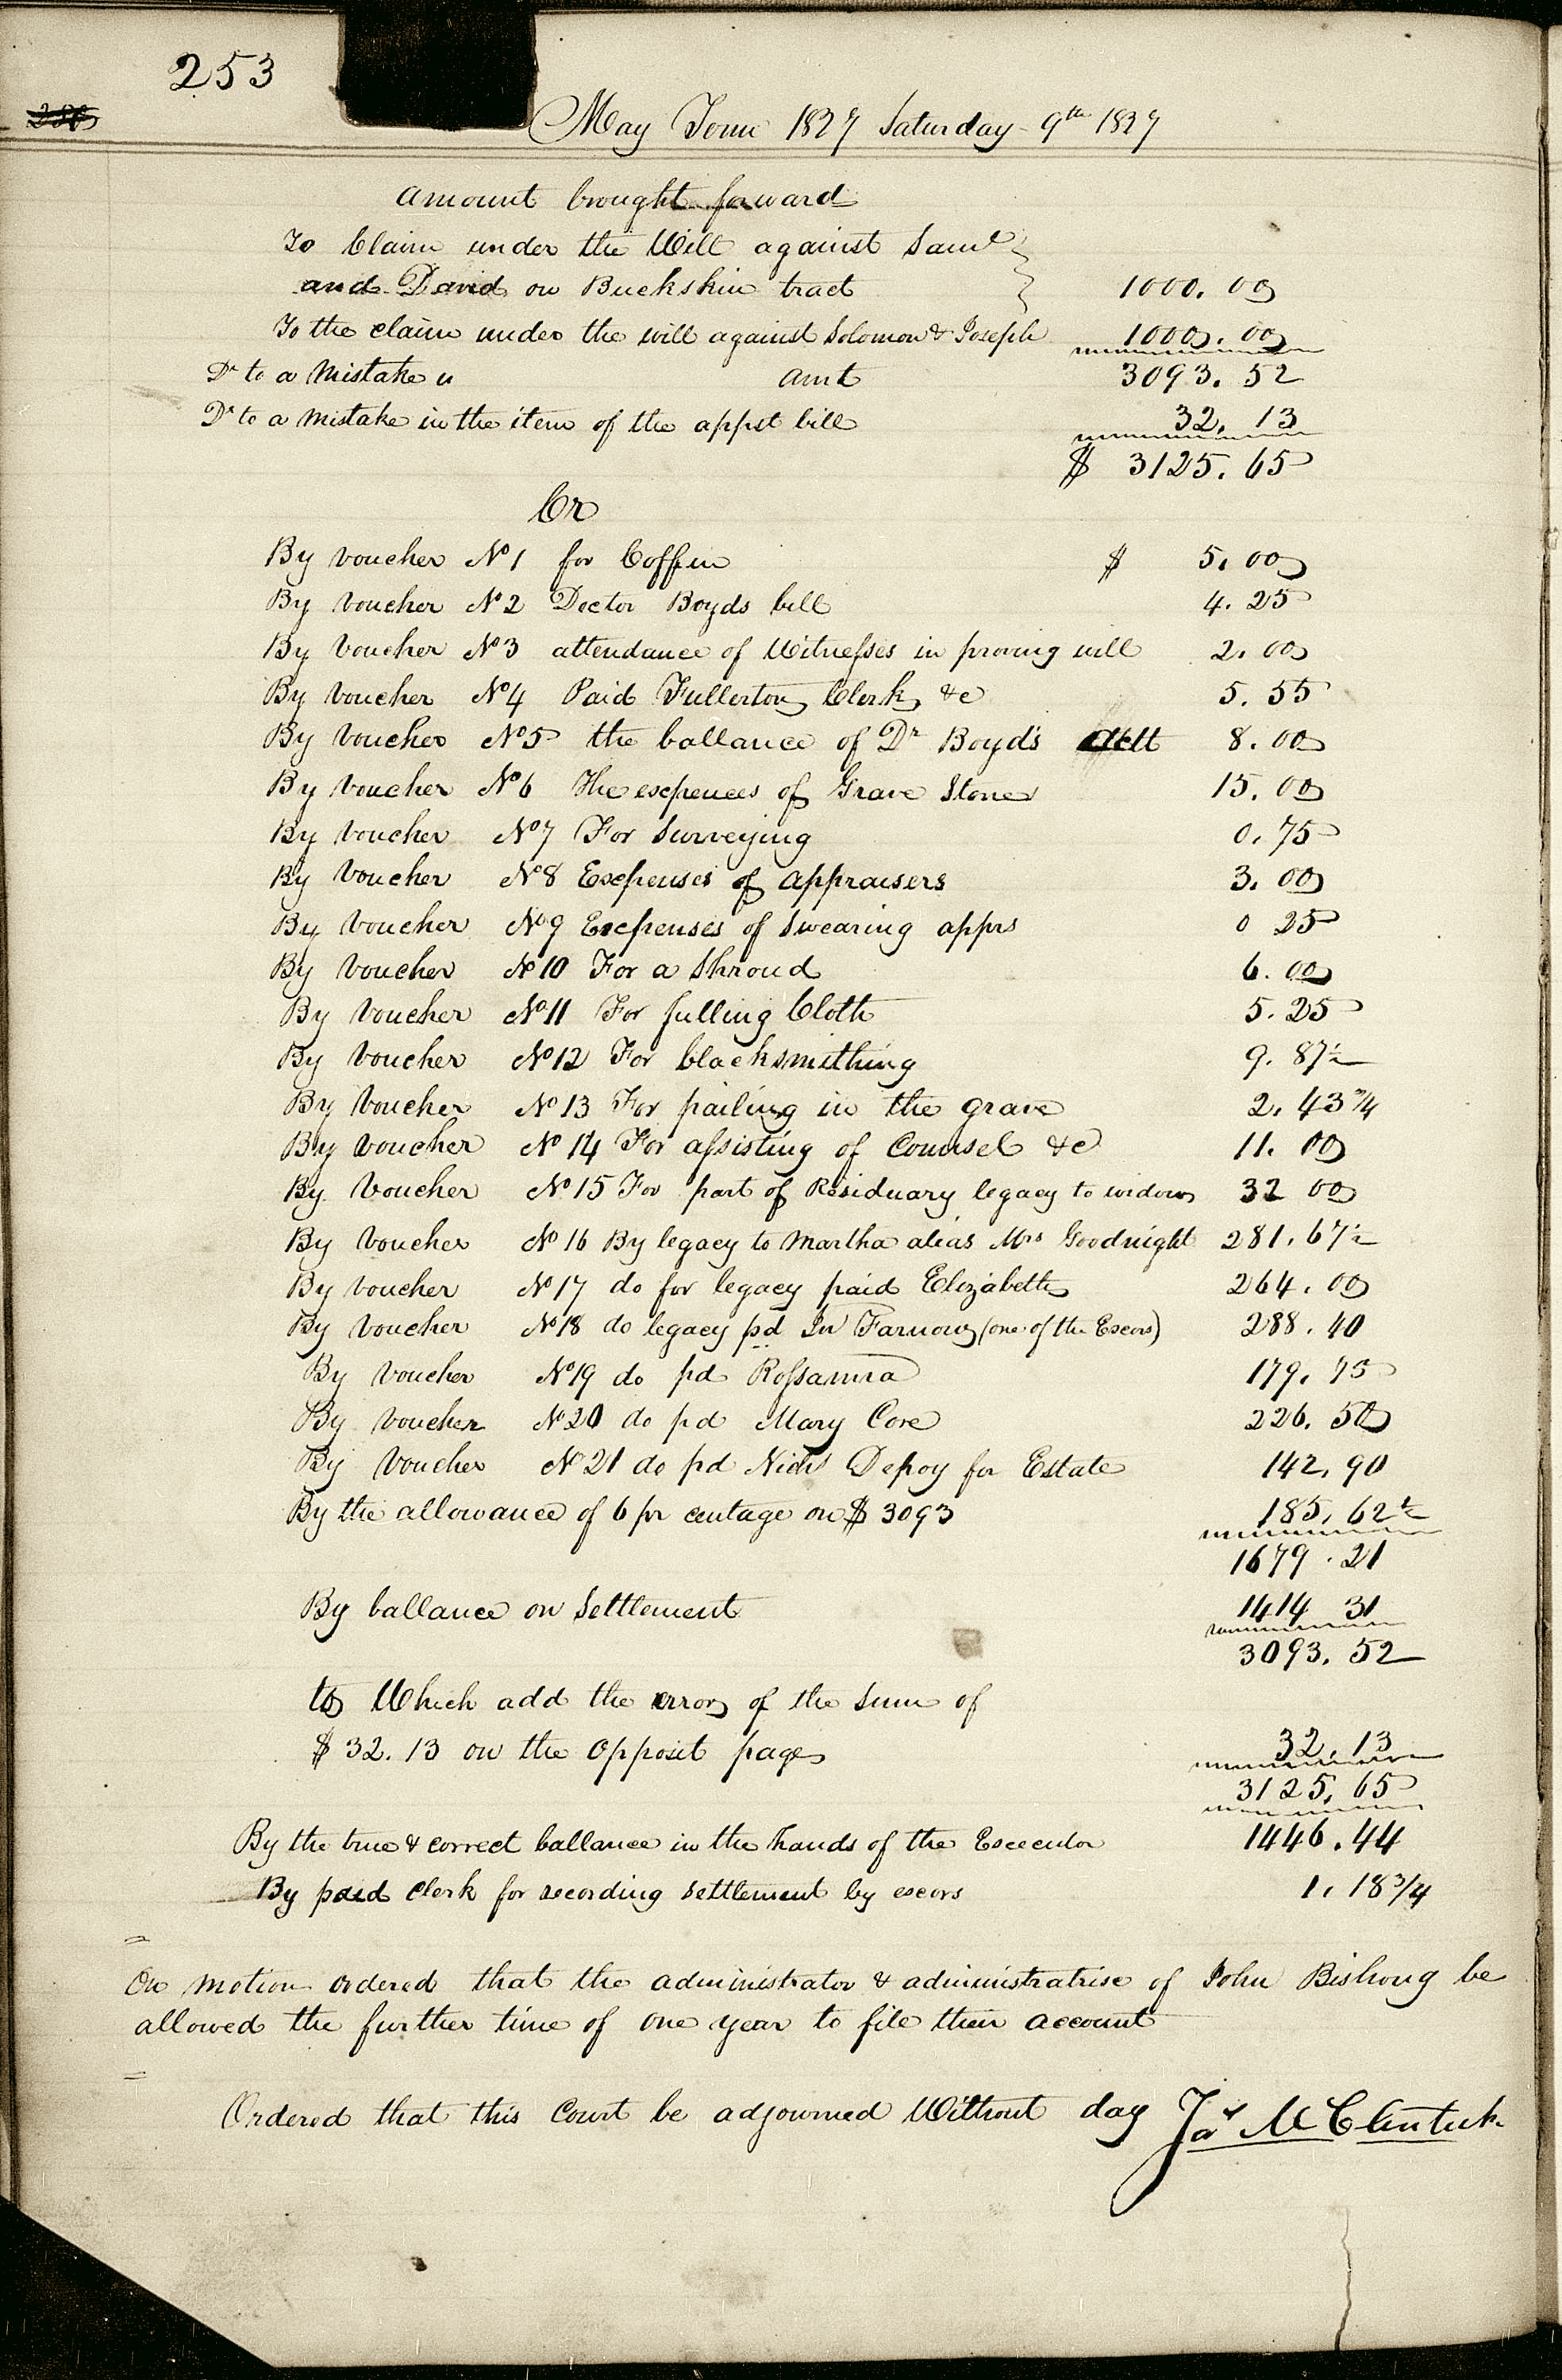 253
May Term 1827 Saturday 9th 1827
amount brought forward
To Claim under the Will against Saml
and David on Buckskin tract 1000.00
To the claim under the will against Solomon & Joseph 1000.00
Dr to a Mistake in amt 3093.52
Dr to a Mistake in the item of the appst bill 32.13
$ 3125.65
Cr
By voucher No 1 for Coffin $ 5.00
By voucher No 2 Doctor Boyds bill 4.25
By Voucher No 3 attendance of Witnesses in proving will 2.00
By Voucher No 4 Paid Fullerton Clerk &c 5.55
By Voucher No 5 the ballance of Dr Boyd's 8.00
By Voucher No 6 The expences of Grave Stone 15.00
By Voucher No 7 For Surveying 0.75
By Voucher No 8 Expenses of appraisers 3.00
By Voucher No 9 Expenses of Swearing apprs 0 25
By Voucher No 10 For a Shroud 6.00
By Voucher No 11 For fulling Cloth 5.25
By Voucher No 12 For blacksmithing 9.87½
By Voucher No 13 For pailing in the grave 2.43¾
By Voucher No 14 For assisting of Counsel &c 11.00
By Voucher No 15 For part of Residuary legacy to widow 32 00
By Voucher No 16 By legacy to Martha alias Mrs Goodnight 281.67½
By voucher No 17 do for legacy paid Elizabeth 264.00
By Voucher No 18 do legacy pd Jno Farnow (one of the Execors) 288.40
By Voucher No 19 do pd Rossanna 179.75
By Voucher No 20 do pd Mary Core 226.50
By Voucher No 21 do pd Nichs Depoy for Estate 142,90
By the allowance of 6 pr centage on $ 3093 185,62½
1679.21
By ballance on Settlement 1414 31
3093.52
to Which add the error of the Sum of
$ 32.13 on the Opposit page 32.13
3125,65
By the true & correct ballance in the hands of the Executor 1446.44
By paid Clerk for recording Settlement by execors 1,18¾
On motion ordered that the administrator & administratrix of John Bishong be
allowed the further time of one year to file their account
Ordered that this Court be adjourned Without day Jas McClintick